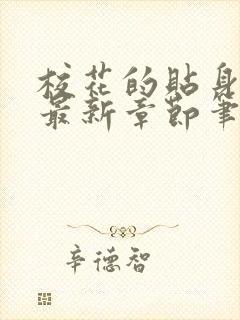 校花的貼身
最新章節筆
辛德智